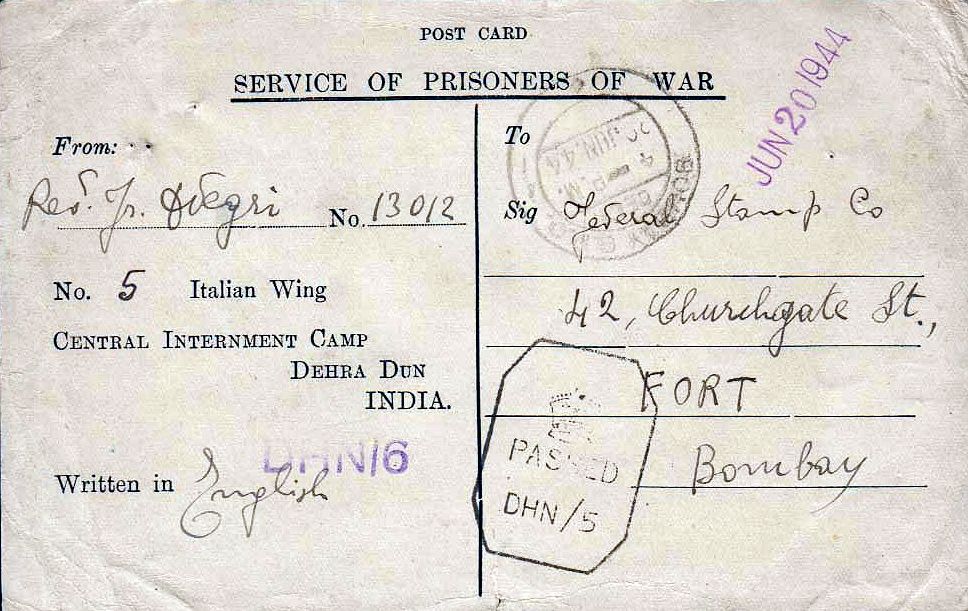 POST CARD
SERVICE OF PRISONERS OF WAR
JUN 20 1944
From:
Rev. Fr. Negri No. 13012
No. 5 Italian Wing
CENTRAL INTERNMENT CAMP
DEHRA DUN
INDIA.
DHN/6
Written in English
To
4 P.M.
20 JUN. 44
Sig Federal Stamp Co
42, Churchgate St.,
FORT
Bombay
PASSED
DHN/5